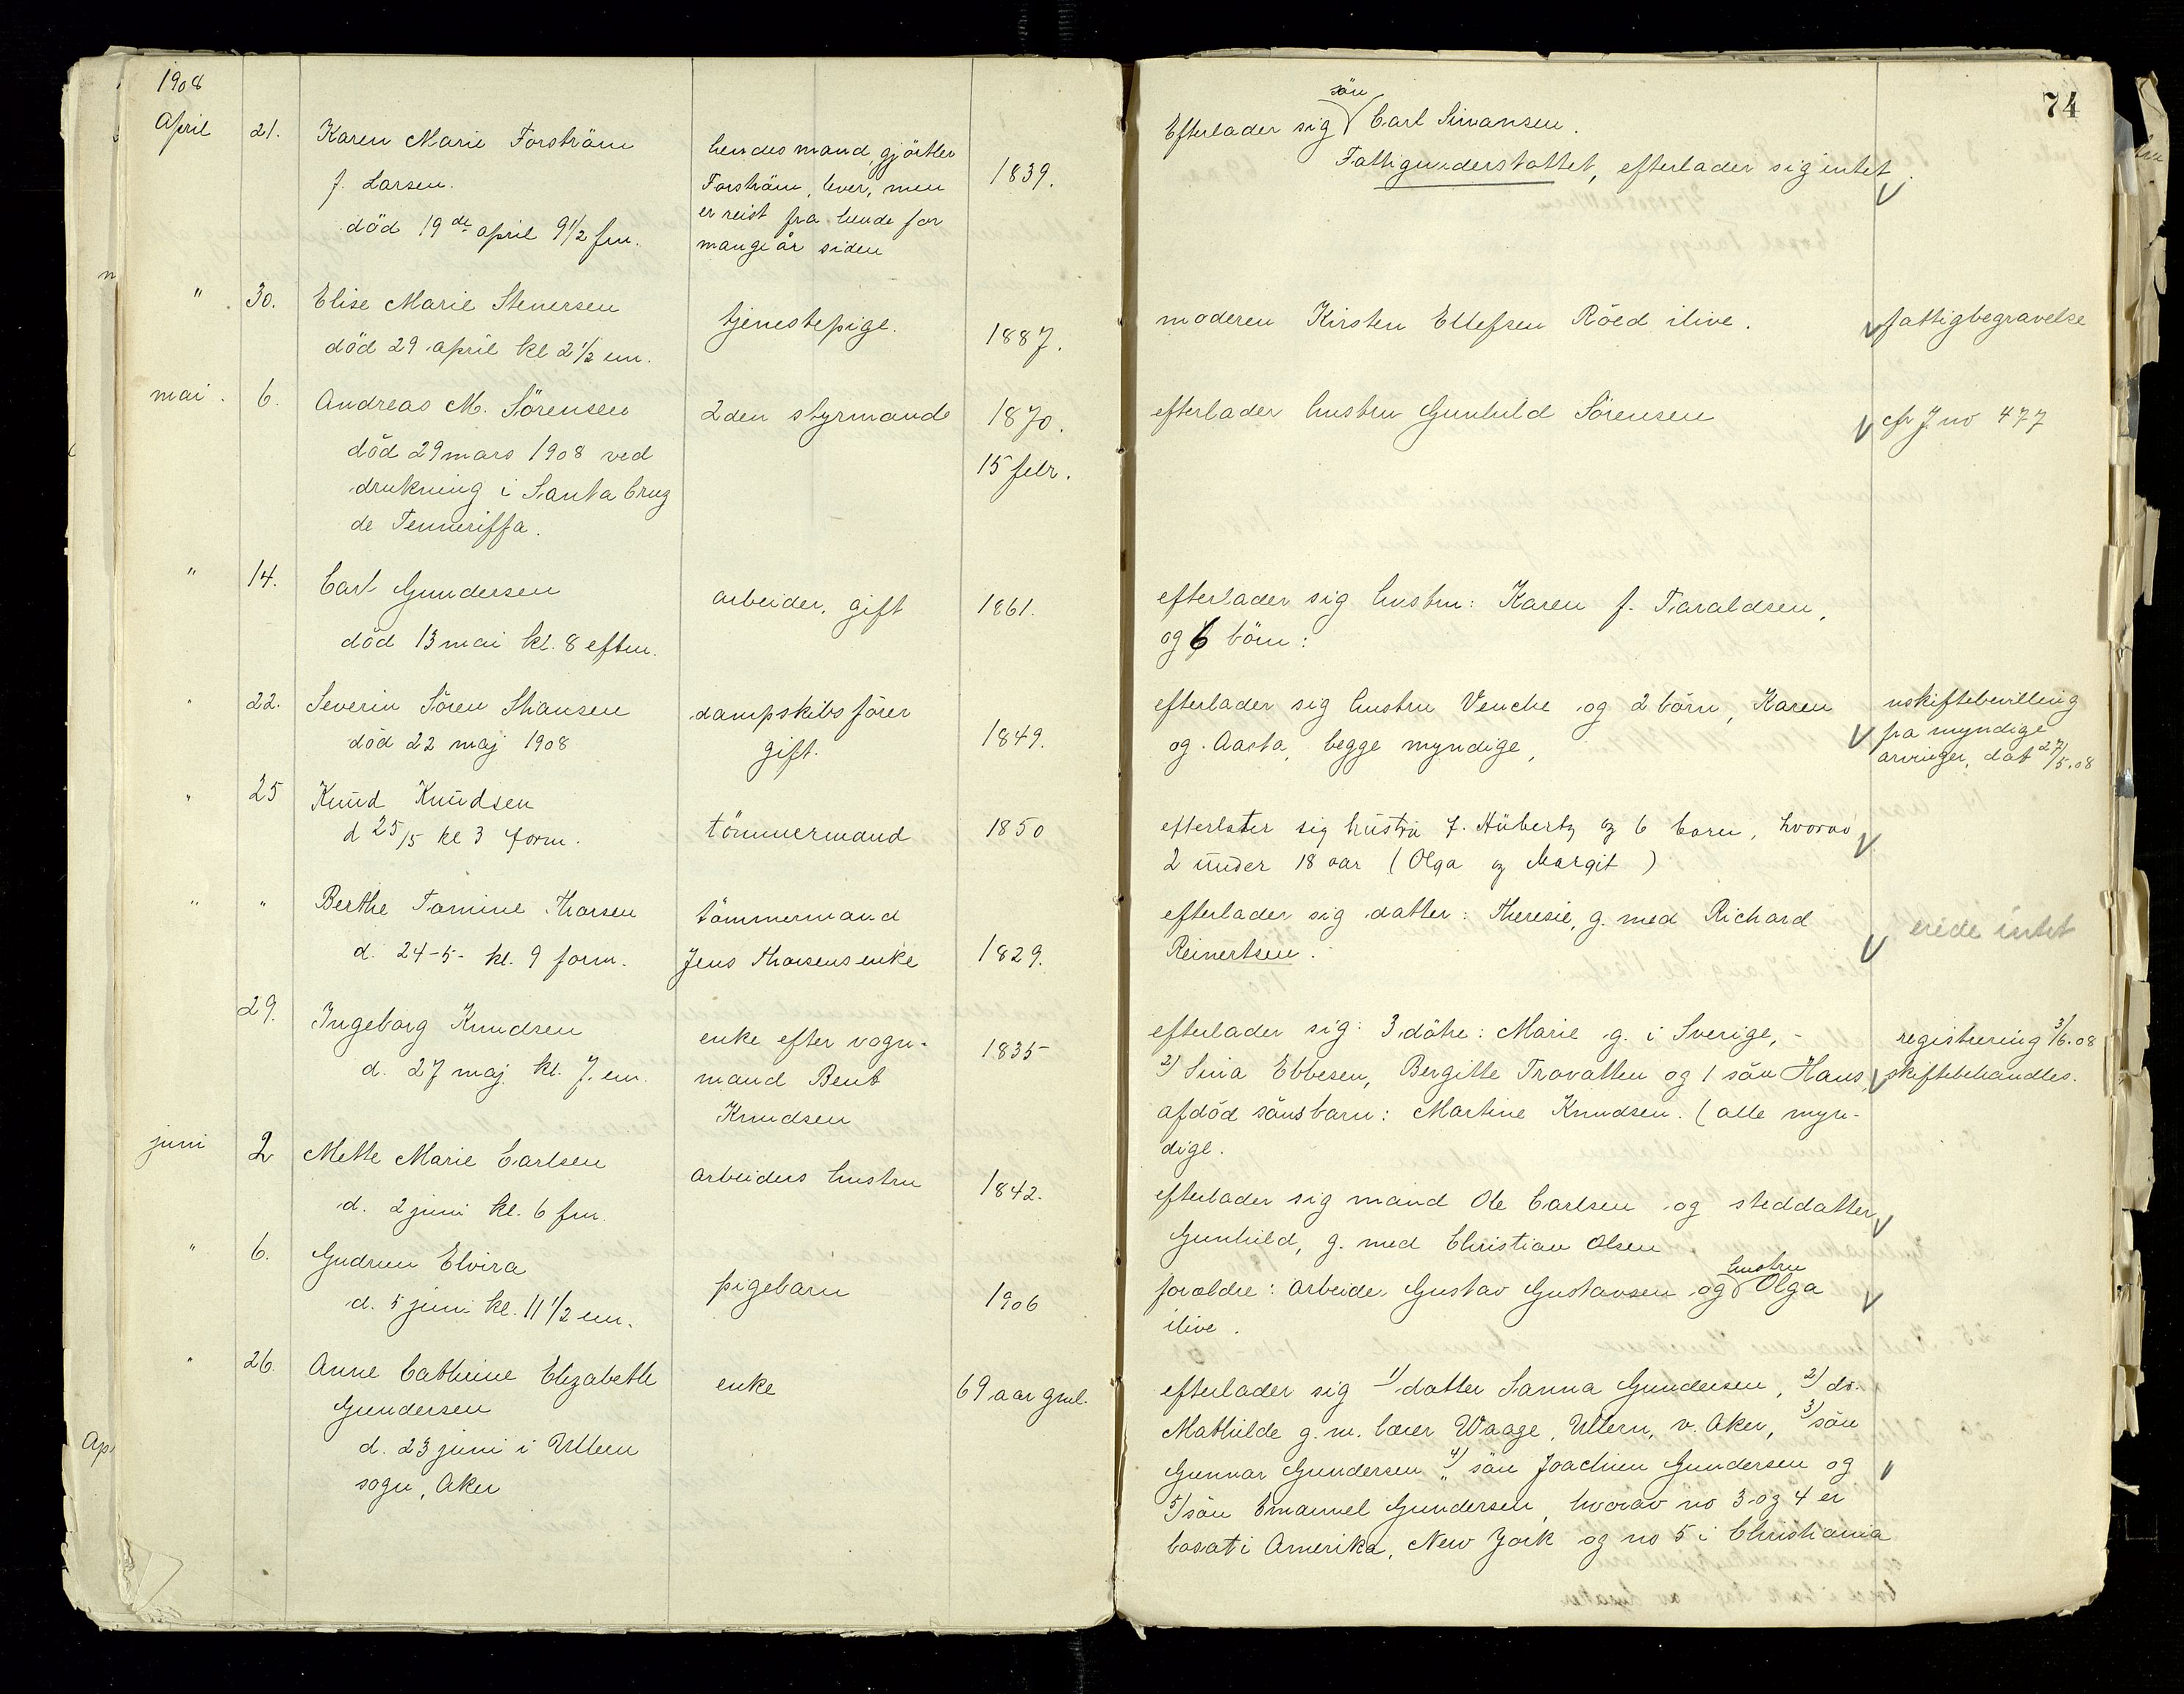 1908
74
April 21. Karen Marie Forström
f. Larsen.
död 19de april 9 1/2 fm.
hendes mand, gjörtler
Forström, lever, men
er reist fra hende for
mange år siden
1839.
Efterlader sig sön Carl Simansen.
Fattigunderstöttet, efterlader sig intet.
" 30. Elise Marie Stenersen
död 29 april kl 2 1/2 em.
tjenestepige.
1887.
moderen Kirsten Ellefsen Röed ilive.
fattigbegravelse
mai. 6. Andreas M. Sörensen
död 29 mars 1908 ved
drukning i Santa Cruz
de Tenneriffa.
2den styrmand
1870.
15 febr.
efterlader hustru Gunhild Sörensen
cfr J no 477
" 14. Carl Gundersen
död 13 mai kl. 8 eftm.
arbeider, gift
1861.
efterlader sig hustru: Karen f. Taraldsen,
og 6 börn:
" 22. Severin Sören Thansen
död 22 maj 1908
dampskibsförer
gift.
1849.
efterlader sig hustru Venche og 2 börn, Karen
og Aasta, begge myndige,
uskiftebevilling
fra myndige
arvinger, dat 27/5.08
" 25 Knud Knudsen
d 25/5 kl 3 form.
tömmermand
1850
efterlater sig hustru f. Hübertz og 6 barn, hvorav
2 under 18 aar (Olga og Margit)
" " Berthe Tomine Thorsen
d. 24-5- kl. 9 form.
tömmermand
Jens Thorsens enke
1829.
efterlader sig datter: Theresie, g. med Richard
Reinertsen.
eiede intet
29. Ingeborg Knudsen
d. 27 maj kl. 7. em.
enke efter vogn-
mand Bent
Knudsen
1835
efterlader sig: 3 dötre: Marie g. i Sverige, -
2) Sina Ebbesen, Bergitte Travatten og 1 sön Hans,
afdöd sönsbarn: Martine Knudsen. (alle myn-
dige.
registrering 3/6.08
skiftebehandles.
juni 2 Mette Marie Carlsen
d. 2 juni kl. 6 fm.
arbeiders hustru
1842.
efterlader sig mand Ole Carlsen og steddatter
Gunhild, g. med Christian Olsen
" 6. Gudrun Elvira
d. 5 juni kl. 11 1/2 em.
pigebarn
1906
forældre: arbeider Gustav Gustavsen og hustru Olga
ilive.
" 26. Anne Cathrine Elizabeth
Gundersen
d. 23 juni i Ullern
sogn, Aker
enke
69 aar gml.
efterlader sig 1) datter Sanna Gundersen, 2) do.
Mathilde g. m. lærer Waage, Ullern, v. Aker, 3) sön
Gunnar Gundersen, 4) sön Joachim Gundersen og
5) sön Emanuel Gundersen, hvorav no 3 og 4 er
bosat i Amerika, New York og no 5 i Christiania